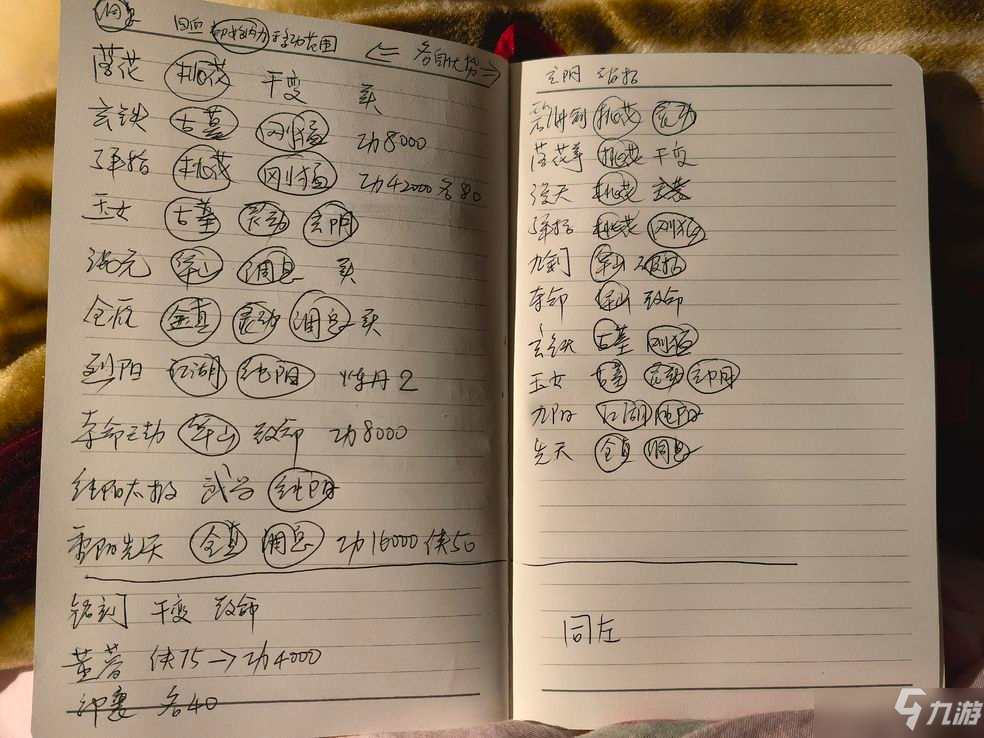 调息 回血 内力 移动范围
⇐ 各自优势 ⇒
落花 桃花 千变 买
玄铁 古墓 刚猛 功8000
弹指 桃花 刚猛 功42000 名80
玉女 古墓 灵动 玄阴
混元 华山 调息 买
全真 灵动 调息 买
烈阳 江湖 纯阳 炼丹2
夺命三劫 华山 致命 功8000
纯阳太极 武当 纯阳
重阳先天 全真 调息 功16000 侠50
铭刻 千变 致命
黄蓉 侠75→功4000
名40
玄阴 破招
桃花 灵动
落花掌 桃花 千变
弹指 桃花 刚猛
九剑 华山 破招
夺命 华山 致命
玄铁 古墓 刚猛
玉女 古墓 灵动 玄阴
九阳 江湖 纯阳
先天 全真 调息
同左
九游